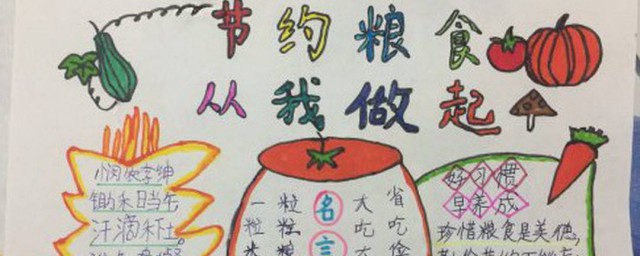 节约粮食
从我做起
悯农 李绅
锄禾日当午
汗滴禾下土。
名言
一粒
粒粮
大吃
省吃俭
好习惯
早养成
珍惜粮食是美德,